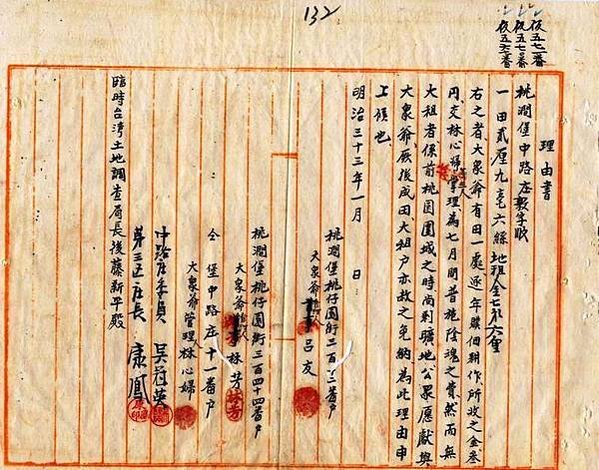 132
假五七一番
假五七〇番
理由書
桃澗堡中路庄
一田貳厘九毛六絲 地租金
右之者大衆爺有田一處逐年贌佃耕作所收之金叁
円交林心婦管理為七月間普施陰魂之費然而無
大租者係前桃園圍城之時尚剩曠地公眾應獻與
大衆爺厥後成田大租戶亦赦之免納為此理由申
上候也
明治三十三年一月 日
桃澗堡桃仔園街二百 番戶
大衆爺 呂友
桃澗堡桃仔園街三百四十四番戶
大衆爺 林芳
仝堡中路庄十一番戶
大衆爺管理人林心婦
中路庄委員 吳
第三區庄長 康鳳
臨時台湾土地調查局長後藤新平殿